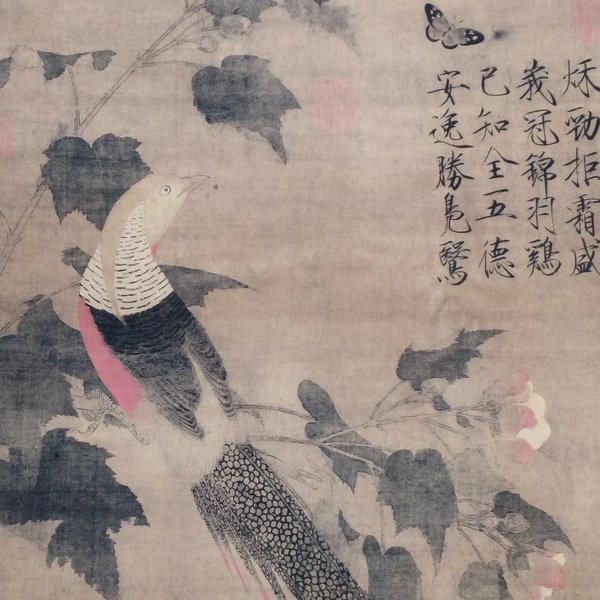 秋勁拒霜盛
峩冠錦羽鷄
已知全五德
安逸勝鳧鷖